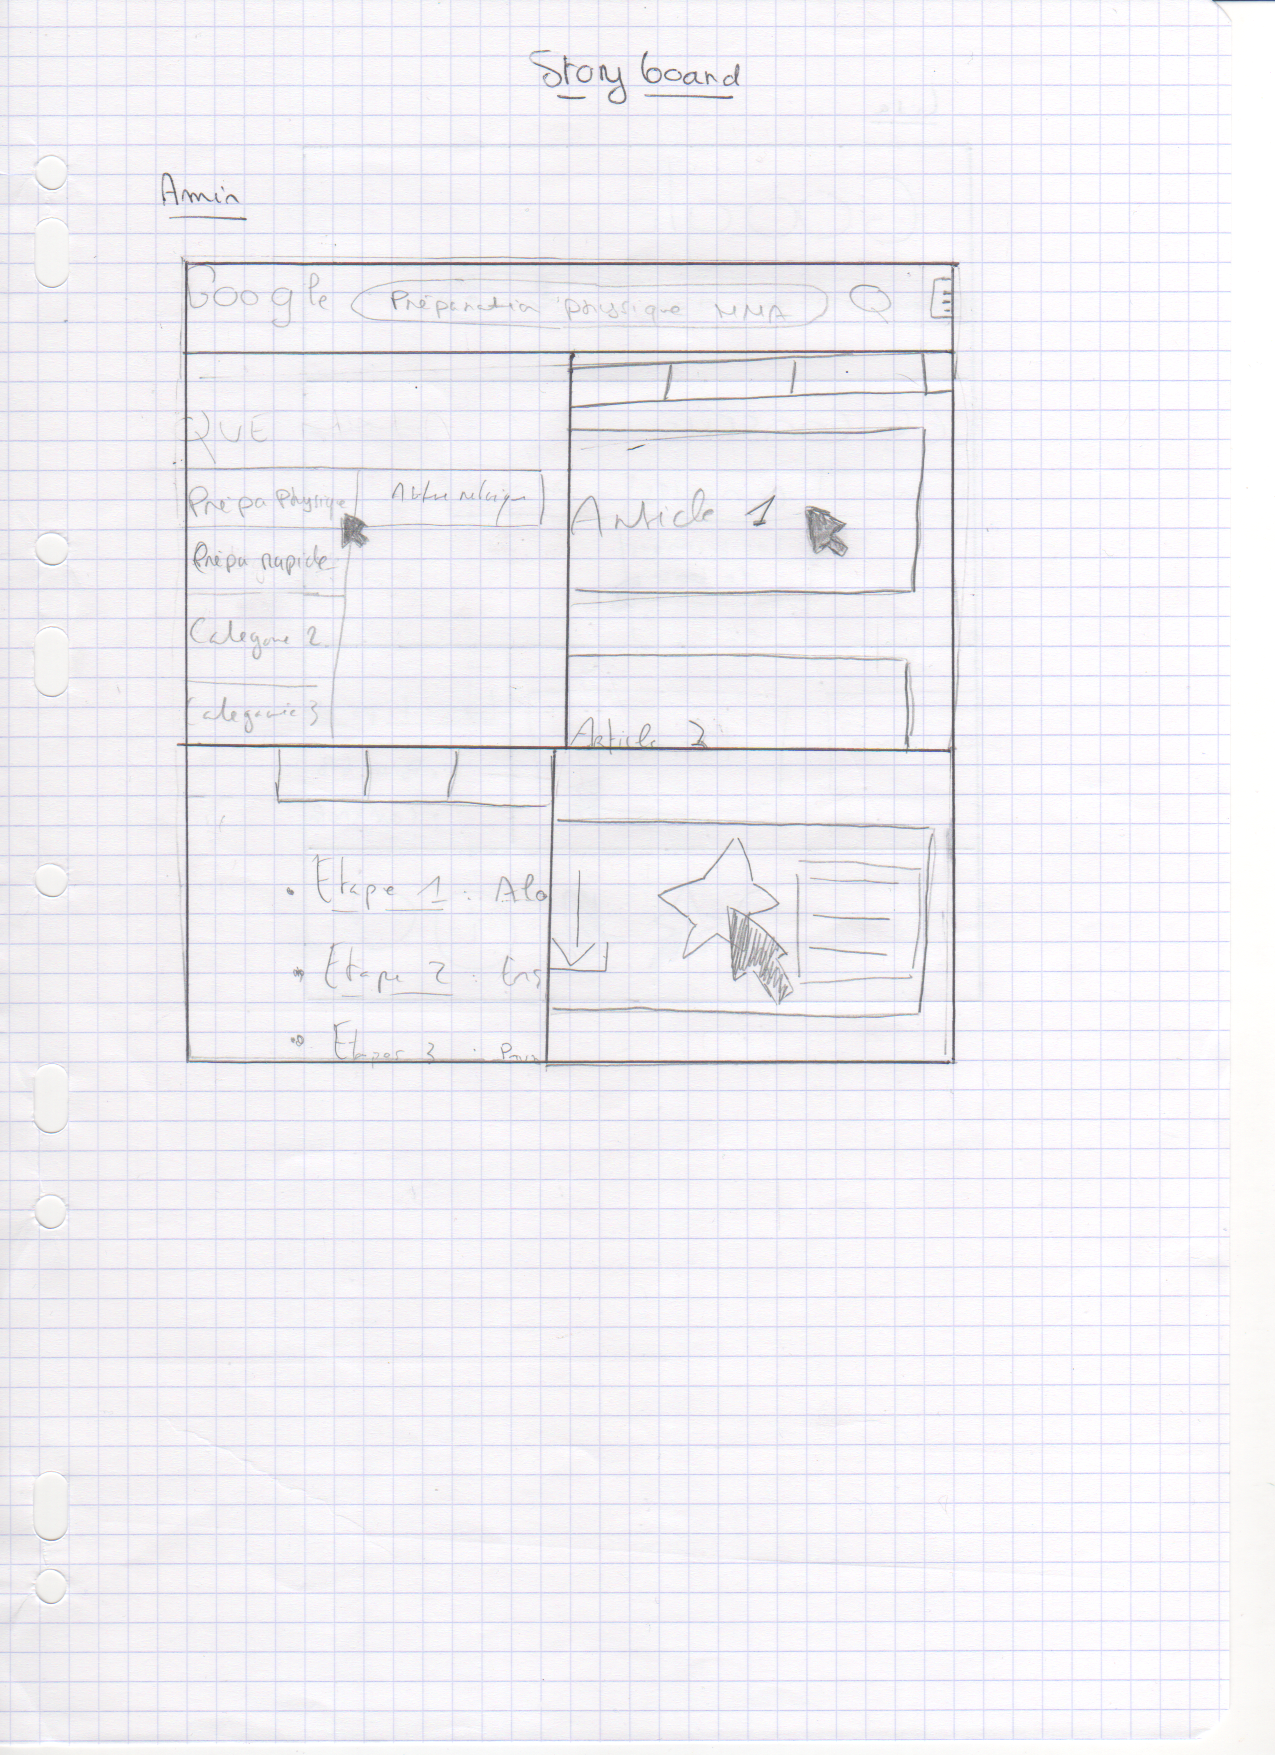 Story board
Amin
Google Préparation physique MMA
QUE
Prépa Physique Autre rubrique
Prépa rapide
Categorie 2
Categorie 3
Article 1
Article 2
• Etape 1 : Alo
• Etape 2 : Ens
• Etapes 3 : Pour